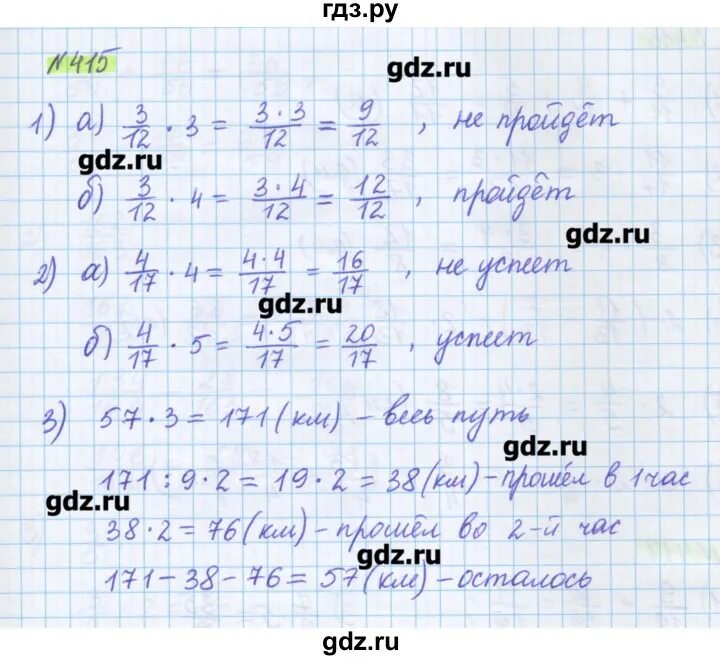 гдз.ру
№415
gdz.ru
1) а) 3/12 · 3 = 3·3/12 = 9/12 , не пройдёт
gdz.ru
б) 3/12 · 4 = 3·4/12 = 12/12 , пройдёт
gdz.ru
2) а) 4/17 · 4 = 4·4/17 = 16/17 , не успеет
gdz.ru
б) 4/17 · 5 = 4·5/17 = 20/17 , успеет
3) 57·3 = 171 (км) – весь путь
gdz.ru
171 : 9·2 = 19·2 = 38 (км) – прошёл в 1 час
gdz.ru
38·2 = 76 (км) – прошёл во 2-й час
gdz.ru
171 – 38 – 76 = 57 (км) – осталось
gdz.ru